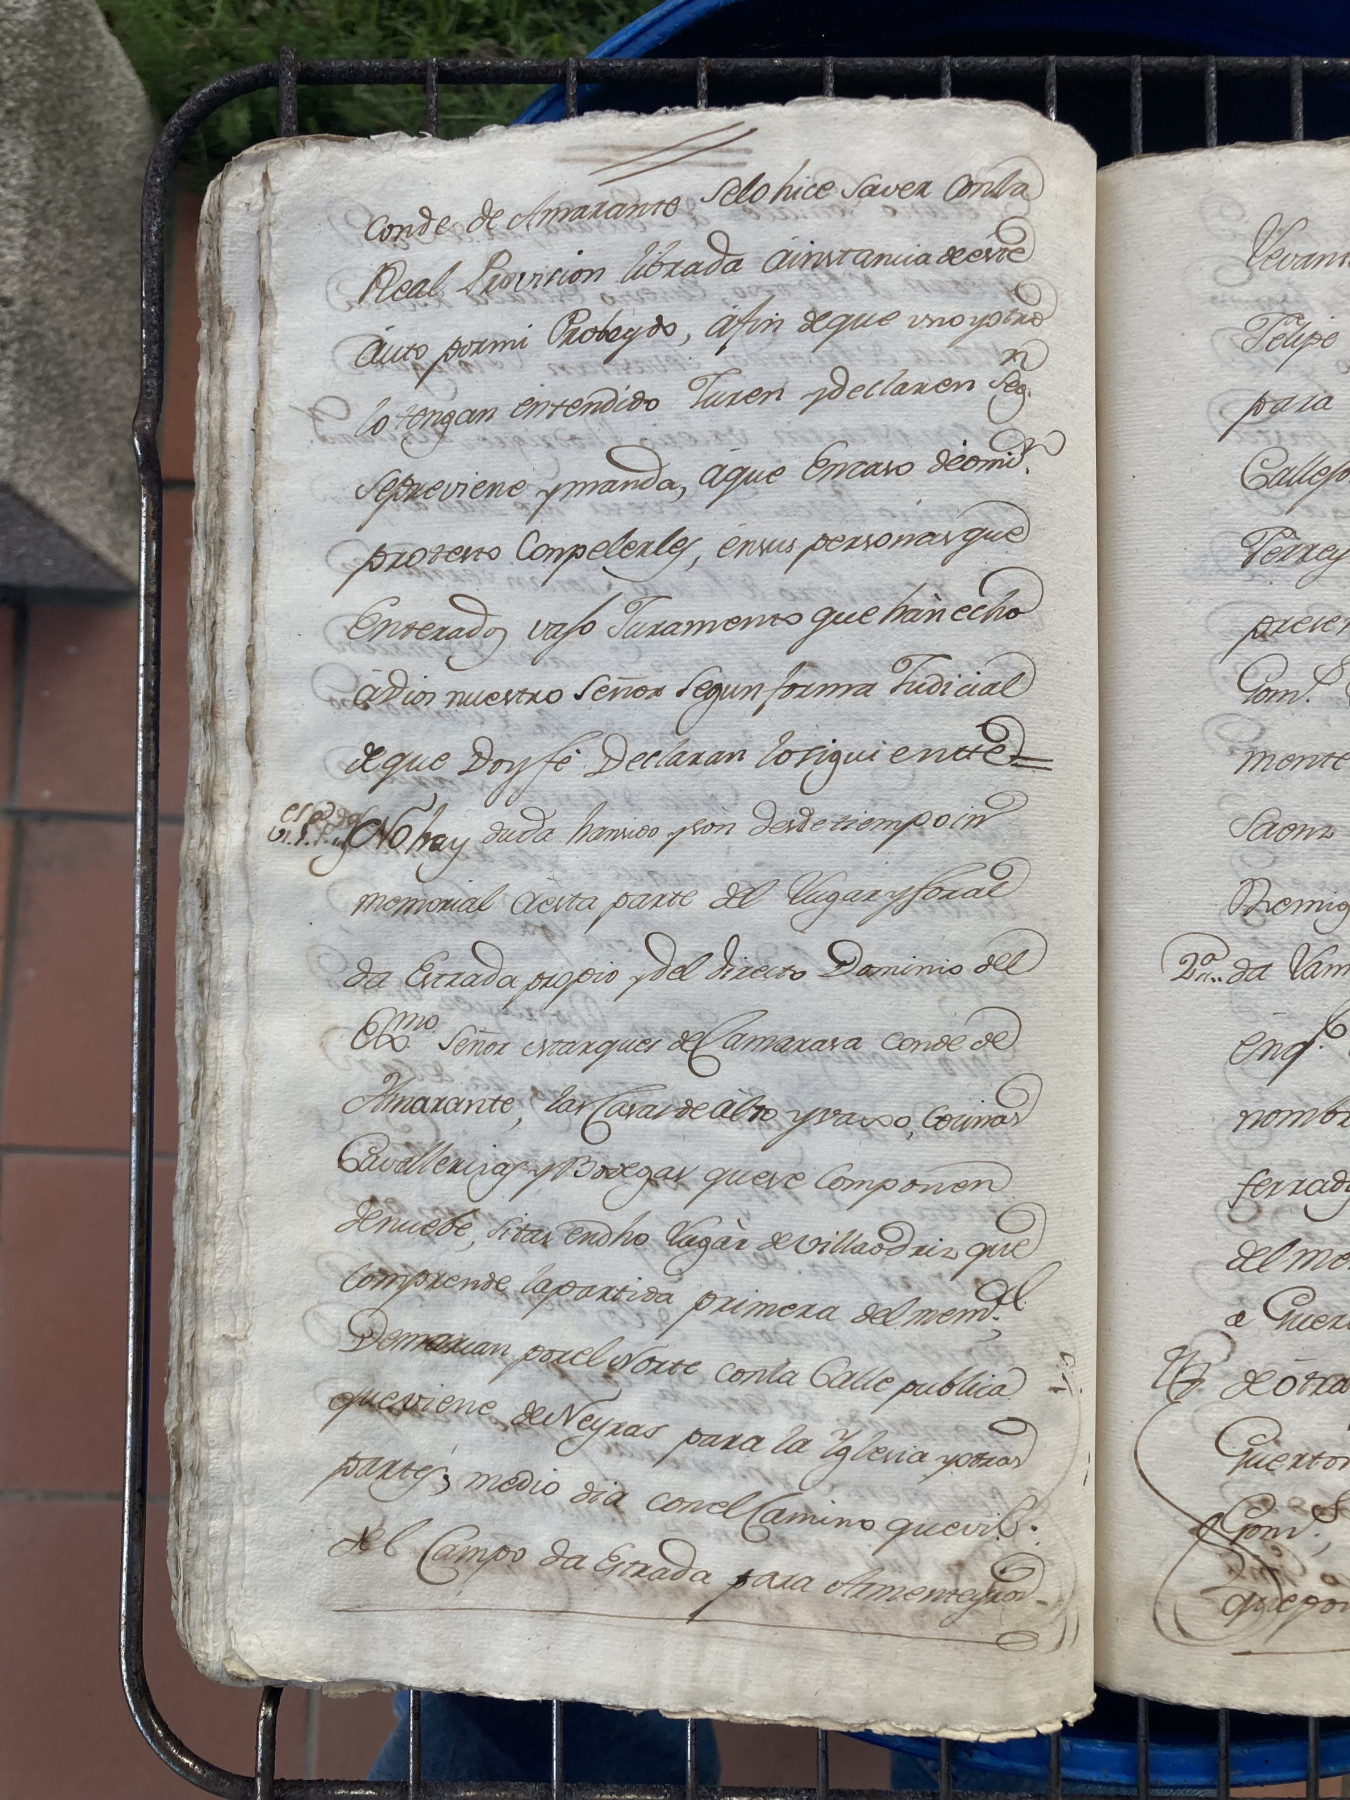 Conde de Amarante selo hice saver conla
Real Provision librada áinstancia deeste
áuto pormi Probeydo, áfin deque uno yotro
lo tengan entendido Juren ydeclaren seg.n
sepreviene ymanda, áque encaso deomis.n
protesto Conpelerles, énsus personas que
Enterados vajo Juramento que han echo
ádios nuestro señor segun forma Judicial
deque Doyfé Declaran losiguiente=
No hay duda hansido yson desdetiempo in
memorial aesta parte del Lugar yforal
da Estrada propio ydel directo Dominio del
Exmo. señor Marques de Camarasa Conde de
Amarante, las Casas de álto yvaxo, Cocinas
Cavallerizas y Bodegas quese Componen
denuebe, sitas endho Lugar de Villaodriz que
comprende lapartida primera del mem.l,
Demarcan porel Norte conla Calle publica
queviene de Neyras para la Yglesia yotras
partes; medio dia conel Camino que
del Campo da Estrada para Armenteyros.
Levant
Felipe
para
Callejo
Terrey
presen
Gom.s
mente
Saenz
Remig
2ª da Vam
énq.
nombr
ferrado
del me
a Guer
de ótra
Guerto
Gom.s
quepor